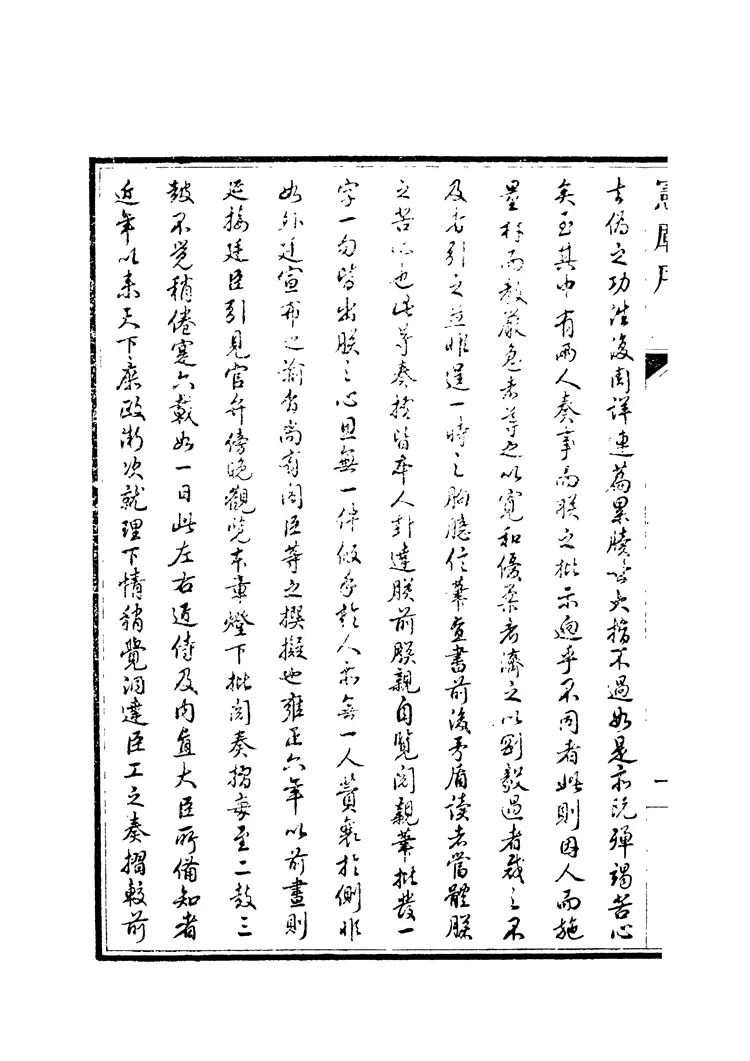 去偽之功往復周詳連篇累牘其大指不過如是京既彈竭苦心
矣至其中有兩人奏事而朕之批示迥乎不同者此則因人而施
量材而教嚴急者導之以寬和優柔者濟之以剛毅過者裁之不
及者引之並非逞一時之胸臆信筆直書前後矛盾讀者當體朕
之苦心也此等奏摺皆本人封達朕前朕親自覽閱親筆批發一
字一句皆出朕之心思無一件假手於人亦無一人贊襄於側非
如外廷宣布之諭旨尚有閣臣等之撰擬也雍正六年以前晝則
延接廷臣引見官弁傍晚觀覽本章燈下批閱奏摺每至二鼓三
鼓不覺稍倦寔六載如一日此左右近侍及內直大臣所備知者
近年以來天下庶政漸次就理下情稍覺洞達臣工之奏摺較前